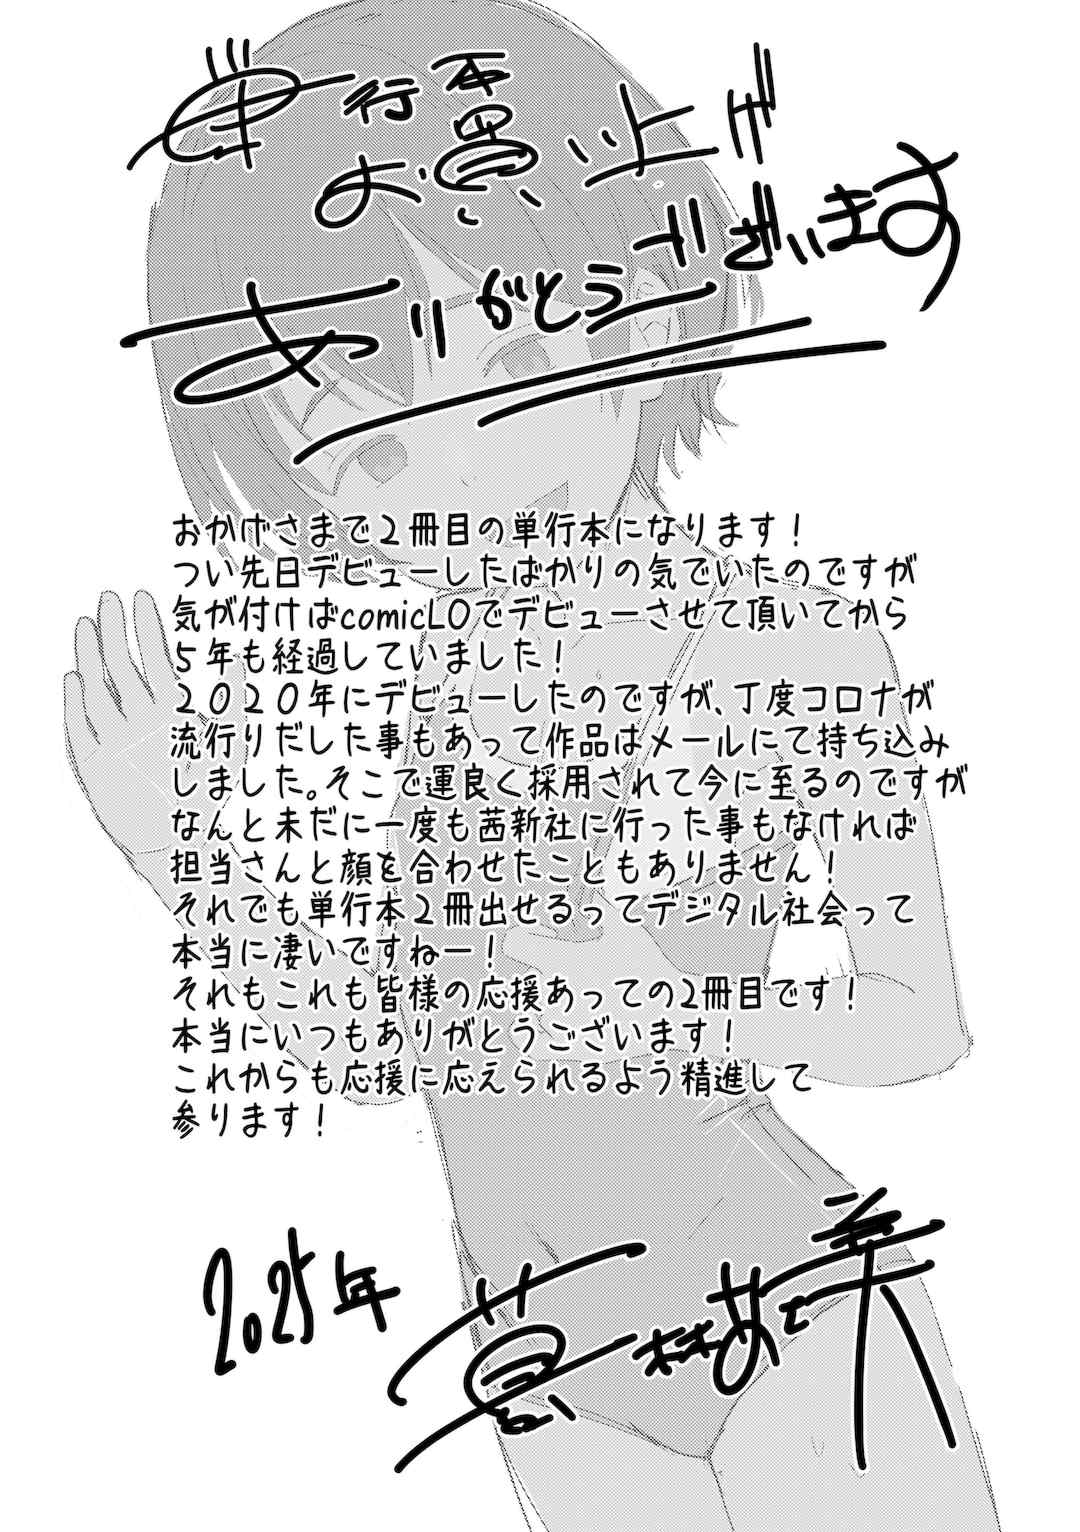 単行本
お買い上げ
ありがとうございます
おかげさまで２冊目の単行本になります！
つい先日デビューしたばかりの気でいたのですが
気が付けばcomicLOでデビューさせて頂いてから
５年も経過していました！
２０２０年にデビューしたのですが、丁度コロナが
流行りだした事もあって作品はメールにて持ち込み
しました。そこで運良く採用されて今に至るのですが
なんと未だに一度も茜新社に行った事もなければ
担当さんと顔を合わせたこともありません！
それでも単行本２冊出せるってデジタル社会って
本当に凄いですねー！
それもこれも皆様の応援あっての2冊目です！
本当にいつもありがとうございます！
これからも応援に応えられるよう精進して
参ります！
2025年